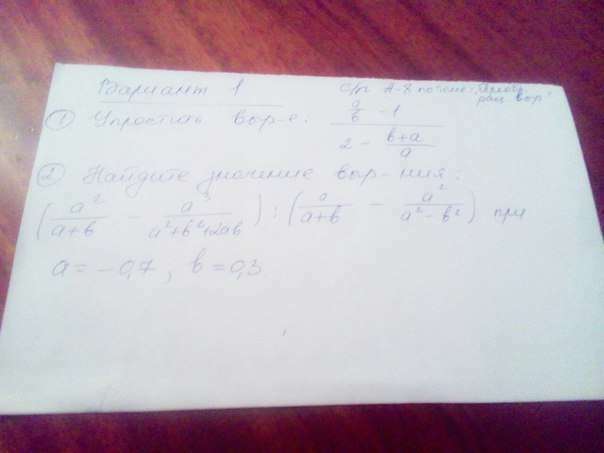 Вариант 1 с/р А-8 по теме: "Преобр. рац. выр."
① Упростить выр-е: (a/b - 1)/(2 - (b+a)/a)
② Найдите значение выр-ния:
(a²/(a+b) - a³/(a²+b²+2ab)) : (a/(a+b) - a²/(a²-b²)) при
a = -0,7, b = 0,3